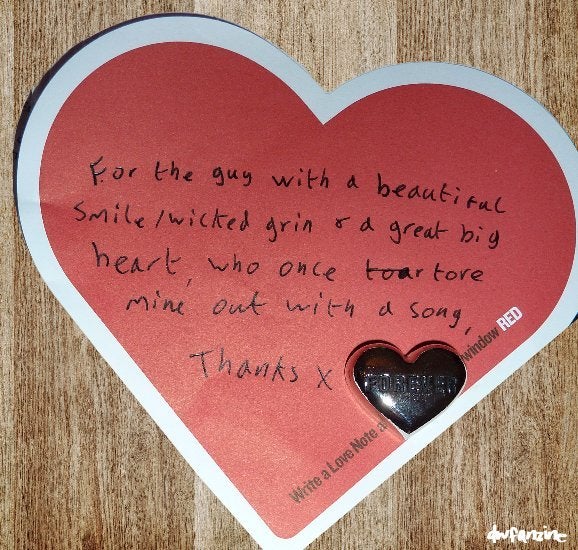 For the guy with a beautiful
smile/wicked grin & a great big
heart, who once toar tore
mine out with a song,
Thanks X
FOREVER
Write a Love Note a
window RED
dwfanzine